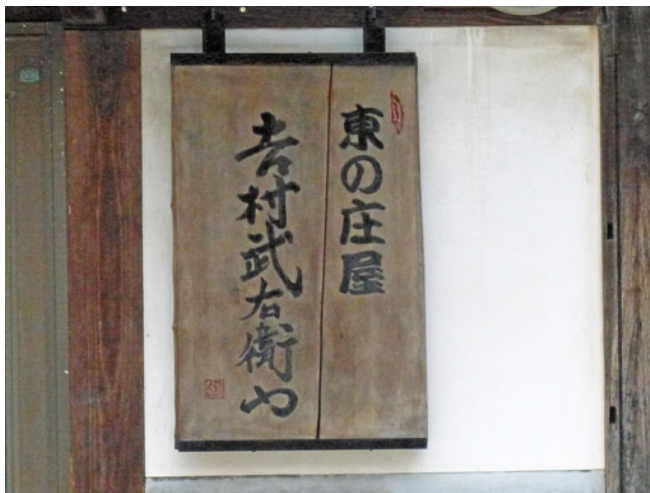 東の庄屋
吉村武右衛門